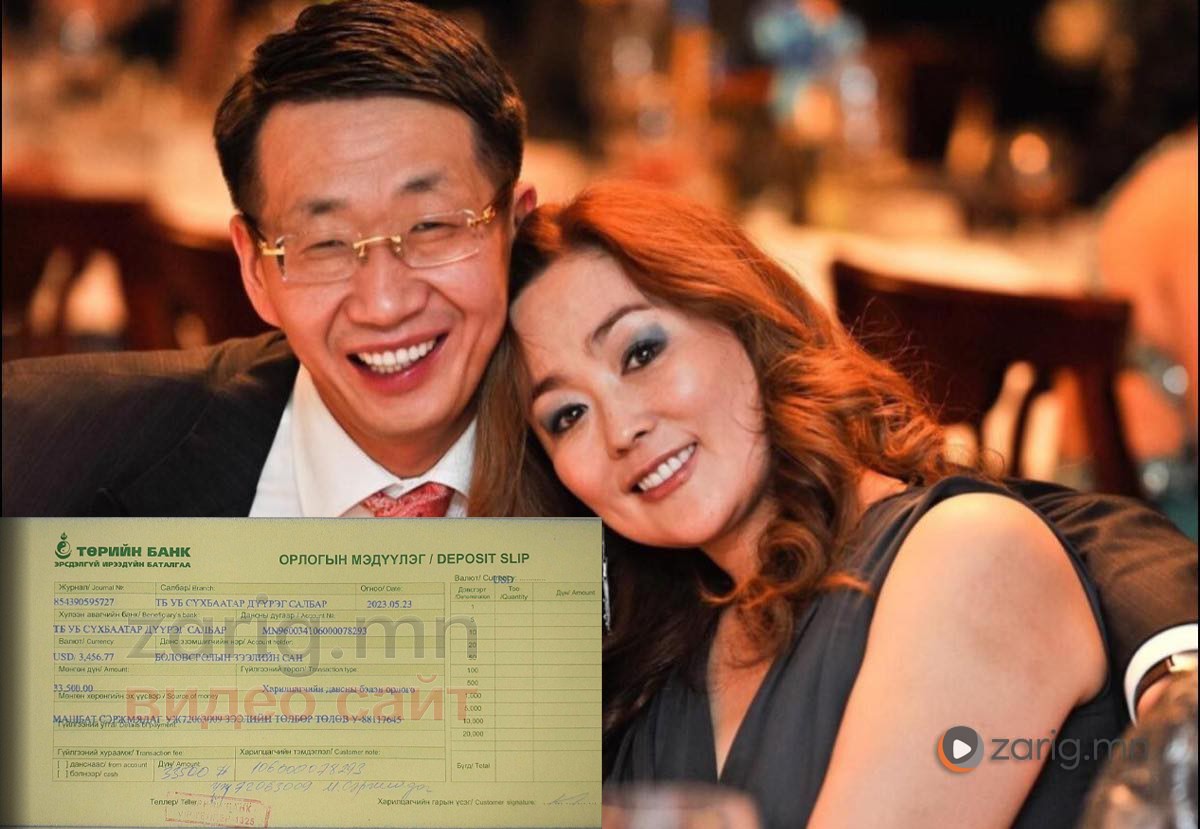 ТӨРИЙН БАНК
ЭРСДЭЛГҮЙ ИРЭЭДҮЙН БАТАЛГАА
ОРЛОГЫН МЭДҮҮЛЭГ / DEPOSIT SLIP
Журнал/ Journal №: Салбар/ Branch: Огноо/ Date:
854390595727 ТБ УБ СҮХБААТАР ДҮҮРЭГ САЛБАР 2023.05.23
Хүлээн авагчийн банк/ Beneficiary's bank: Дансны дугаар / Account №:
ТБ УБ СҮХБААТАР ДҮҮРЭГ САЛБАР MN960034106000078293
Валют/ Currency: Данс эзэмшигчийн нэр/ Account holder:
USD. 3,456.77 БОЛОВСРОЛЫН ЗЭЭЛИЙН САН
Мөнгөн дүн/ Amount: Гүйлгээний төрөл/ Transaction type:
33,500.00 Харилцагчийн дансны бэлэн орлого
Мөнгөн хөрөнгийн эх үүсвэр / Source of money
МАШБАТ СЭРЖМЯДАГ УЖ72063009 ЗЭЭЛИЙН ТӨЛБӨР ТӨЛӨВ У-88117645
Гүйлгээний утга/ Details of payment:
Гүйлгээний хураамж/ Transaction fee: Харилцагчийн тэмдэглэл/ Customer note:
[ ] данснаас/ from account Дүн/ Amount:
[ ] бэлнээр/ cash 33500 ₮ 106000078293
уж72063009
Теллер/ Teller Харилцагчийн гарын үсэг/ Customer signature:
Валют/ Currency: USD
Дэвсгэрт Тоо /Quantity Дүн/ Amount
1
10
20
50
100
500
1,000
5,000
10,000
20,000
Бүгд/ Total
zarig.mn
видео сайт
zarig.mn